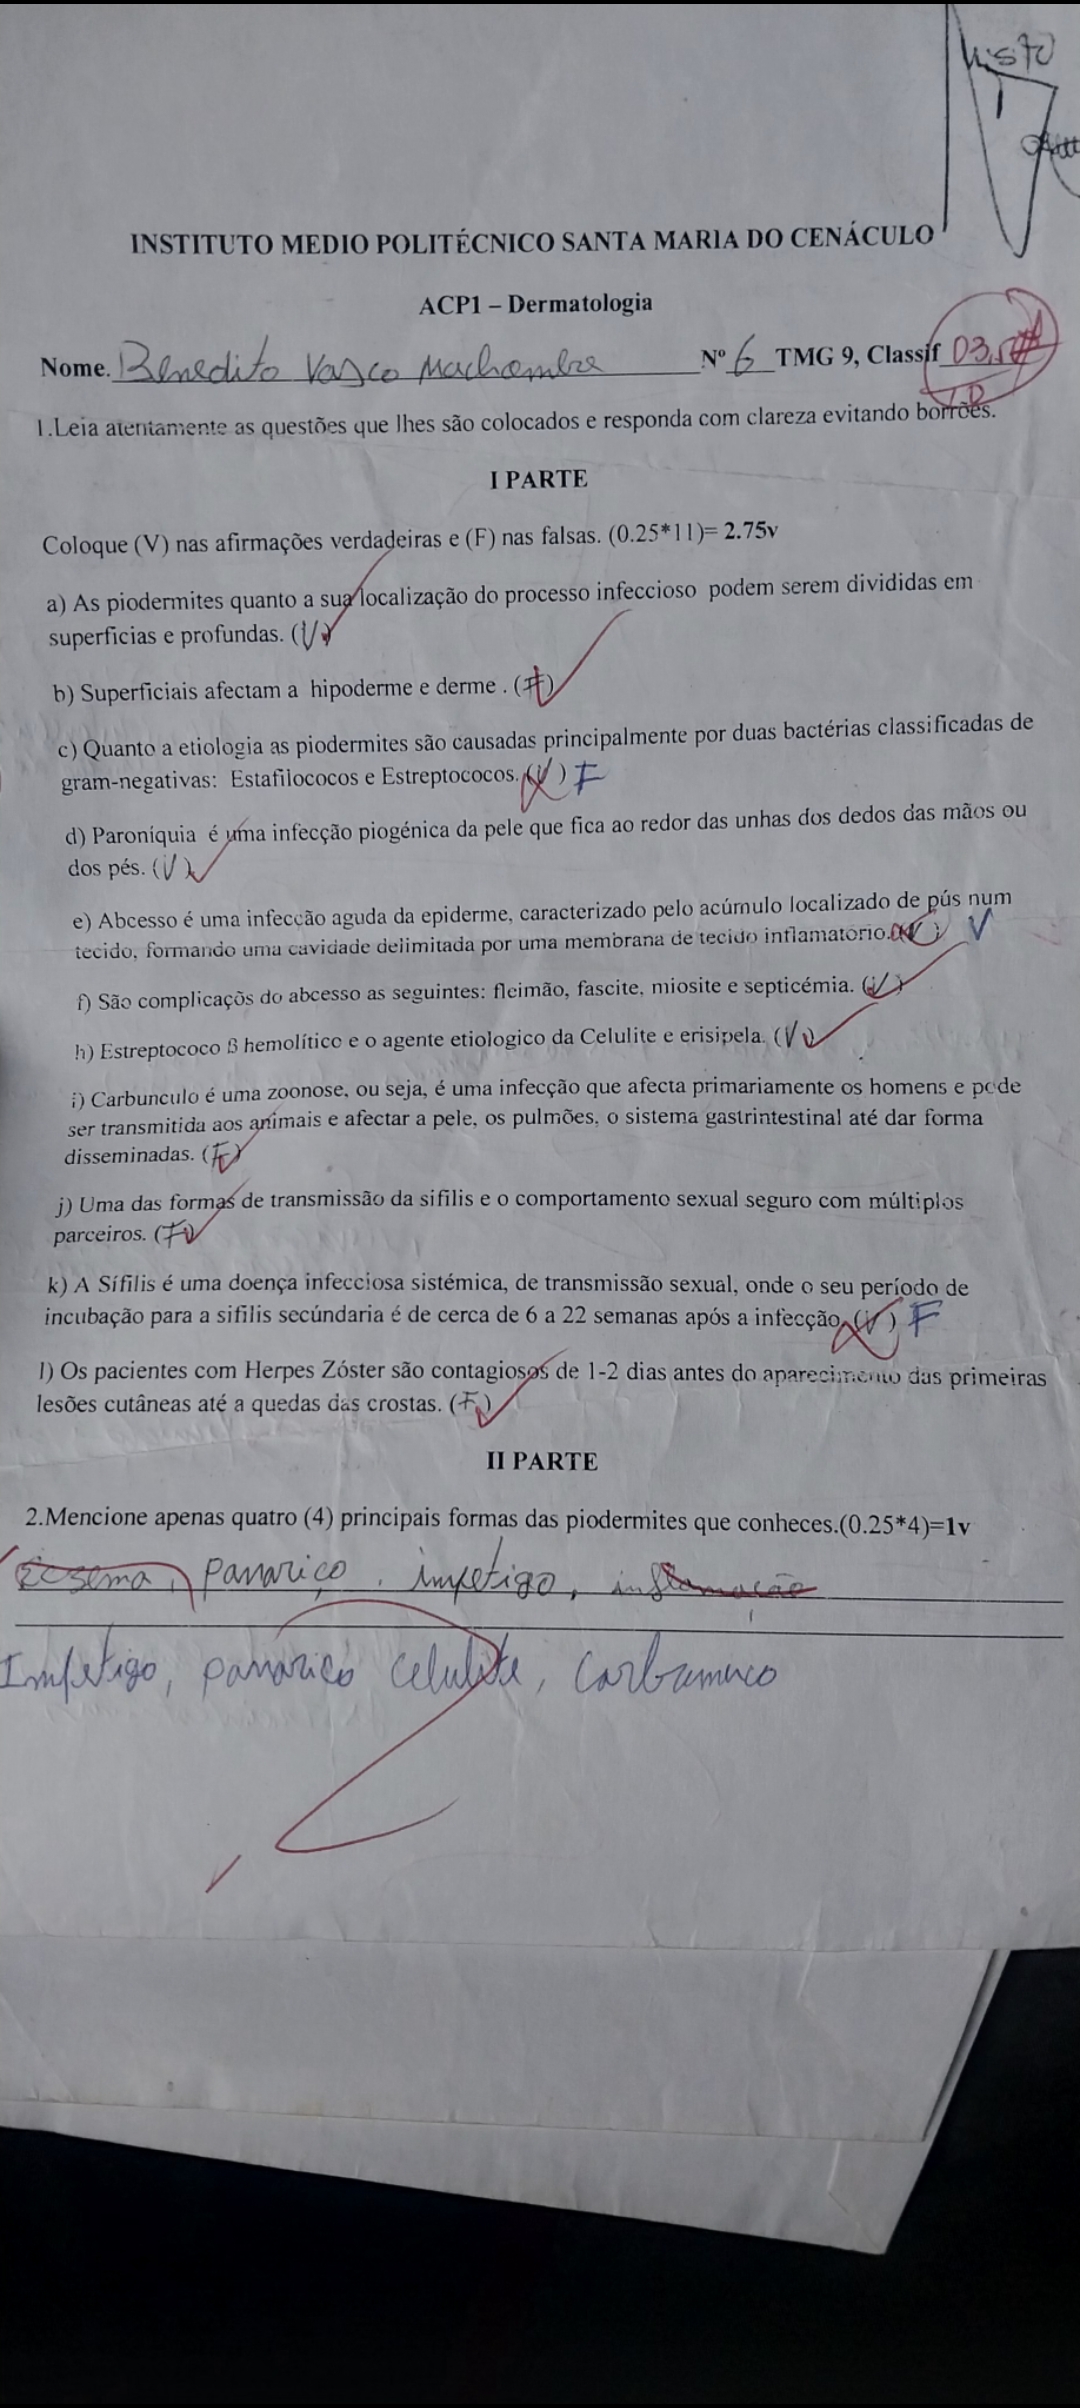 Visto
INSTITUTO MEDIO POLITÉCNICO SANTA MARIA DO CENÁCULO
ACP1 – Dermatologia
Nome. Benedito Vasco Machombe Nº 6 TMG 9, Classif 03,5
1.Leia atentamente as questões que lhes são colocados e responda com clareza evitando borrões.
I PARTE
Coloque (V) nas afirmações verdadeiras e (F) nas falsas. (0.25*11)= 2.75v
a) As piodermites quanto a sua localização do processo infeccioso podem serem divididas em
superficias e profundas. (V)
b) Superficiais afectam a hipoderme e derme . (F)
c) Quanto a etiologia as piodermites são causadas principalmente por duas bactérias classificadas de
gram-negativas: Estafilococos e Estreptococos. (V) F
d) Paroníquia é uma infecção piogénica da pele que fica ao redor das unhas dos dedos das mãos ou
dos pés. (V)
e) Abcesso é uma infecção aguda da epiderme, caracterizado pelo acúmulo localizado de pús num
tecido, formando uma cavidade delimitada por uma membrana de tecido inflamatório. V
f) São complicaçõs do abcesso as seguintes: fleimão, fascite, miosite e septicémia. (V)
h) Estreptococo ß hemolítico e o agente etiologico da Celulite e erisipela. (V)
i) Carbunculo é uma zoonose, ou seja, é uma infecção que afecta primariamente os homens e pode
ser transmitida aos animais e afectar a pele, os pulmões, o sistema gastrintestinal até dar forma
disseminadas. (F)
j) Uma das formas de transmissão da sifilis e o comportamento sexual seguro com múltiplos
parceiros. (F)
k) A Sífilis é uma doença infecciosa sistémica, de transmissão sexual, onde o seu período de
incubação para a sifilis secúndaria é de cerca de 6 a 22 semanas após a infecção. (V) F
l) Os pacientes com Herpes Zóster são contagiosos de 1-2 dias antes do aparecimento das primeiras
lesões cutâneas até a quedas das crostas. (F)
II PARTE
2.Mencione apenas quatro (4) principais formas das piodermites que conheces.(0.25*4)=1v
Eczema, panariço, impetigo, inflamação
Impetigo, panariço celulite, Carbamunco